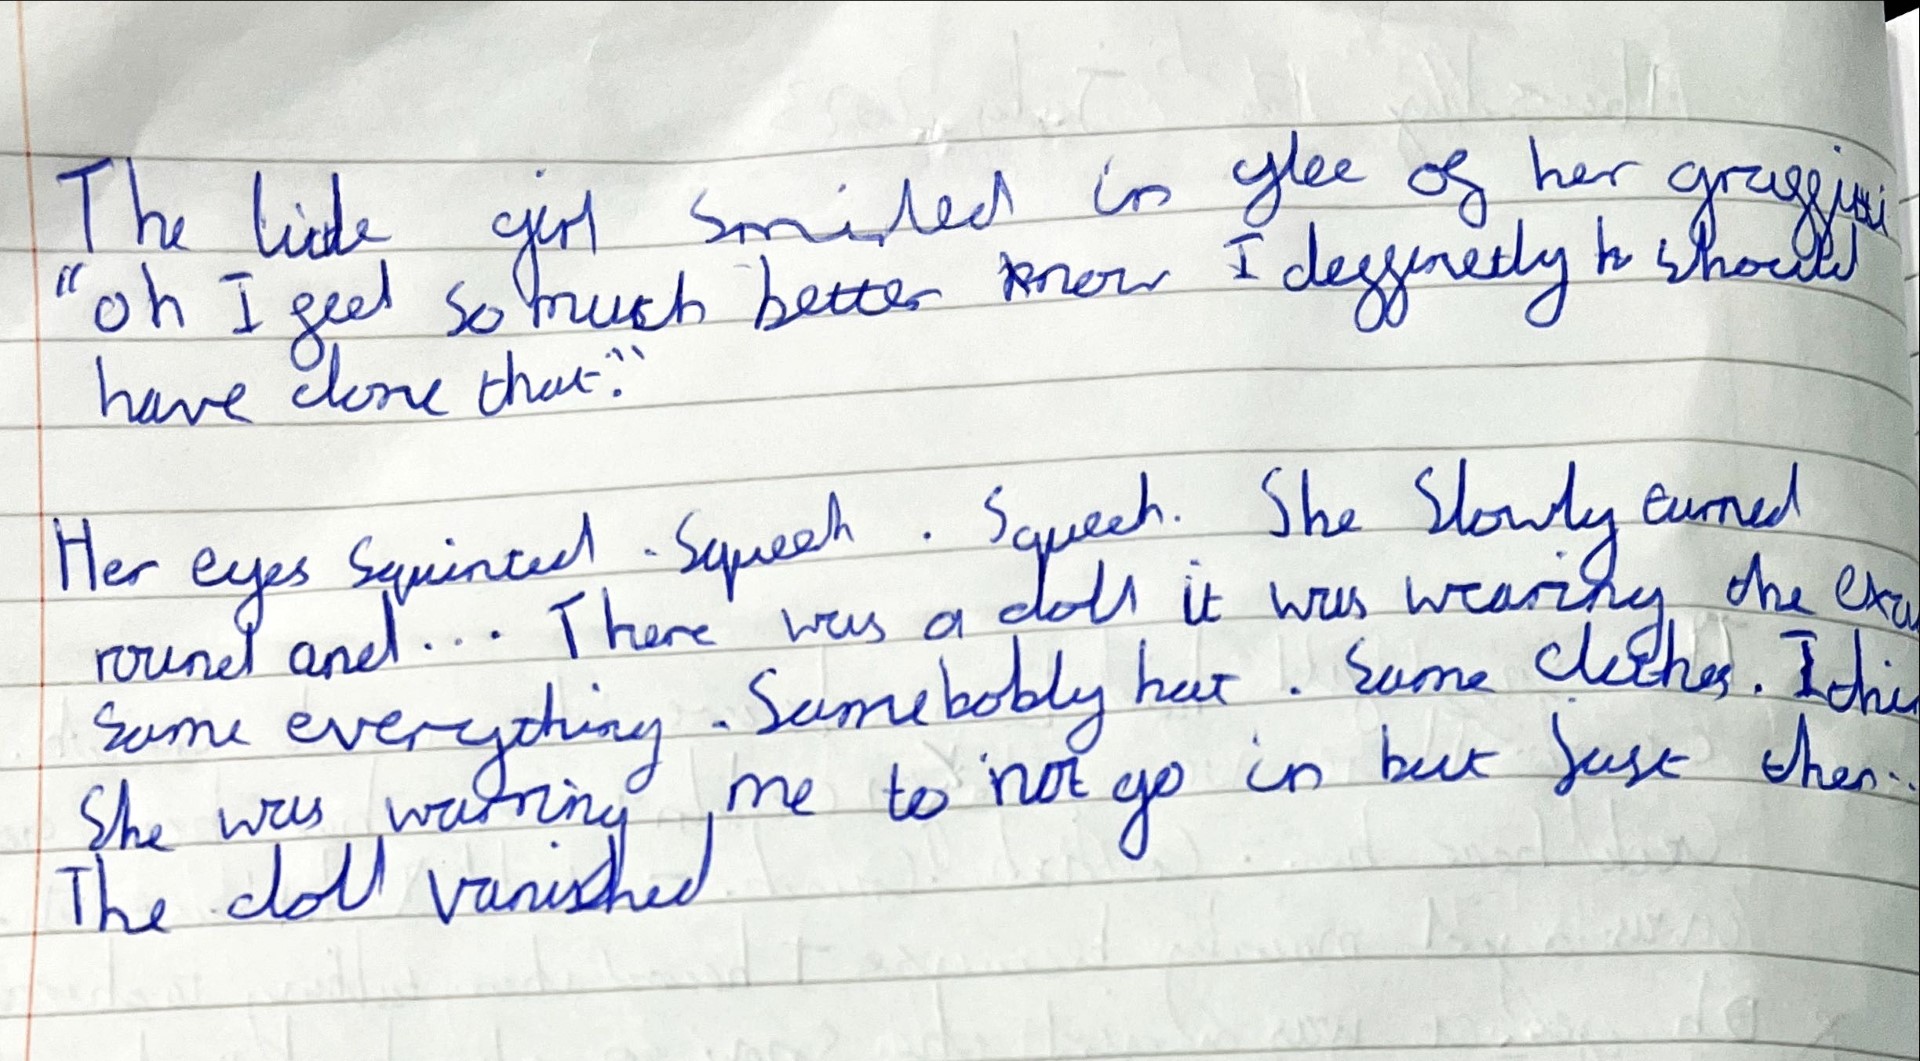 The little girl smiled in glee of her graffiti
"oh I feel so much better know I deffinetly should
have done that."
Her eyes squinted . Squeek . Squeek. She Slowly turned
round and... There was a doll it was wearing the exa
same everything . Same bobbly hat . Same clothes. I thi
She was warning me to not go in but just then..
The doll vanished